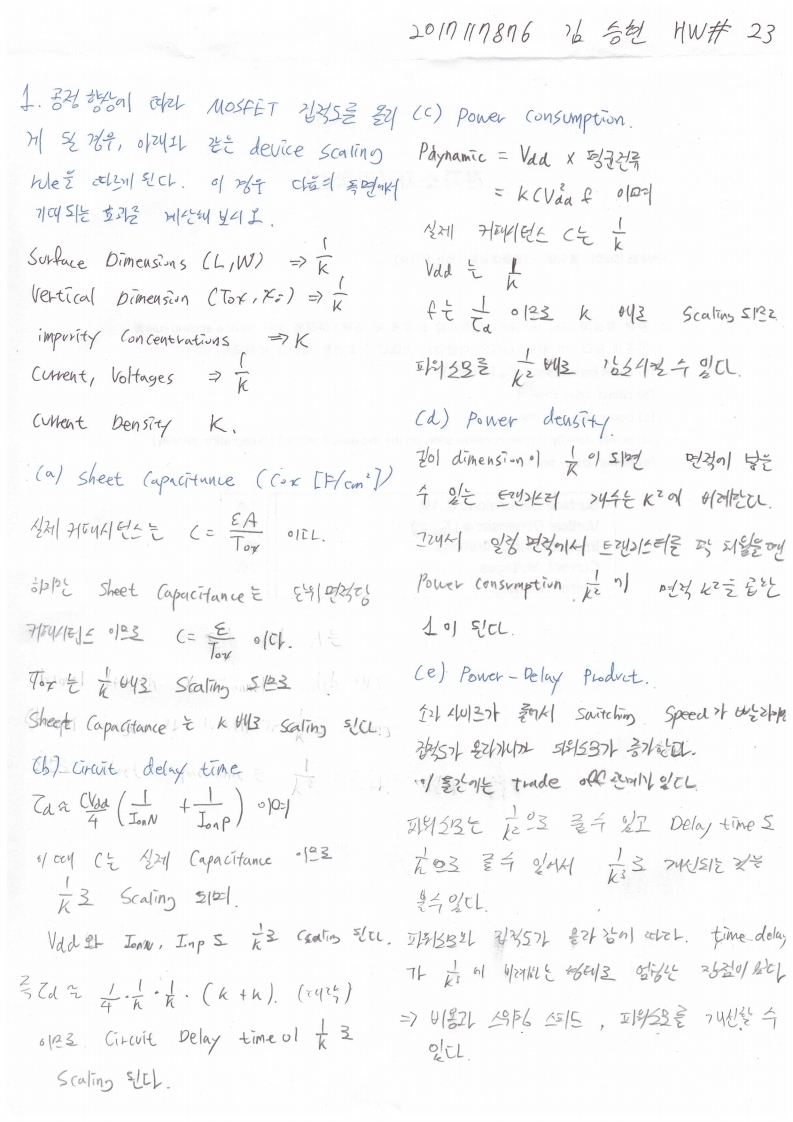 2017117876 김 승현 HW# 23
1. 공정 향상에 따라 MOSFET 집적도를 올리
게 될 경우, 아래와 같은 device scaling
rule을 따르게 된다. 이 경우 다음의 측면에서
기대되는 효과를 계산해 보시오.
Surface Dimensions (L, W) ⇒ 1/K
Vertical Dimension (Tox, xj) ⇒ 1/K
impurity concentrations ⇒ K
Current, Voltages ⇒ 1/K
Current Density K.
(a) Sheet Capacitance (Cox [F/cm²])
실제 커패시턴스는 C = εA/Tox 이다.
하지만 Sheet Capacitance는 단위면적당
커패시턴스 이므로 C = ε/Tox 이다.
Tox는 1/K 배로 Scaling 되므로
Sheet Capacitance는 K 배로 scaling 된다.
(b) Circuit delay time
τd ≈ CVdd/4 (1/IonN + 1/IonP) 이며
이 때 C는 실제 Capacitance 이므로
1/K로 Scaling 되며.
Vdd 와 IonN, Inp 도 1/k로 Scaling 된다.
즉 τd ≈ 1/4 · 1/k · 1/k · (k + k). (대략)
이므로 Circuit Delay time이 1/k 로
Scaling 된다.
(c) Power Consumption.
Pdynamic = Vdd × 평균전류
= kCVdd²f 이며
실제 커패시턴스 C는 1/k
Vdd 는 1/k
f는 1/τd 이므로 k 배로 Scaling 되므로
파워소모를 1/k² 배로 감소시킬 수 있다.
(d) Power density
길이 dimension이 1/K 이 되면 면적에 넣을
수 있는 트랜지스터 개수는 K²에 비례한다.
그래서 일정 면적에서 트랜지스터를 꽉 채웠을땐
Power consumption 1/k² 에 면적 K²를 곱한
1 이 된다.
(e) Power-Delay Product.
소자 사이즈가 줄어서 Switching Speed가 빨라지면
집적도가 올라가니까 파워소모가 증가한다.
이 둘간에는 trade off 관계가 있다.
파워소모는 1/k²으로 줄 수 있고 Delay time도
1/k 으로 줄 수 있어서 1/k³로 개선되는 것을
볼수있다.
파워소모와 집적도가 올라 감에 따다. time delay
가 1/k³ 에 비례하는 형태로 엄청난 장점이 있다
⇒ 비용과 스위칭 스피드, 파워소모를 개선할 수
있다.